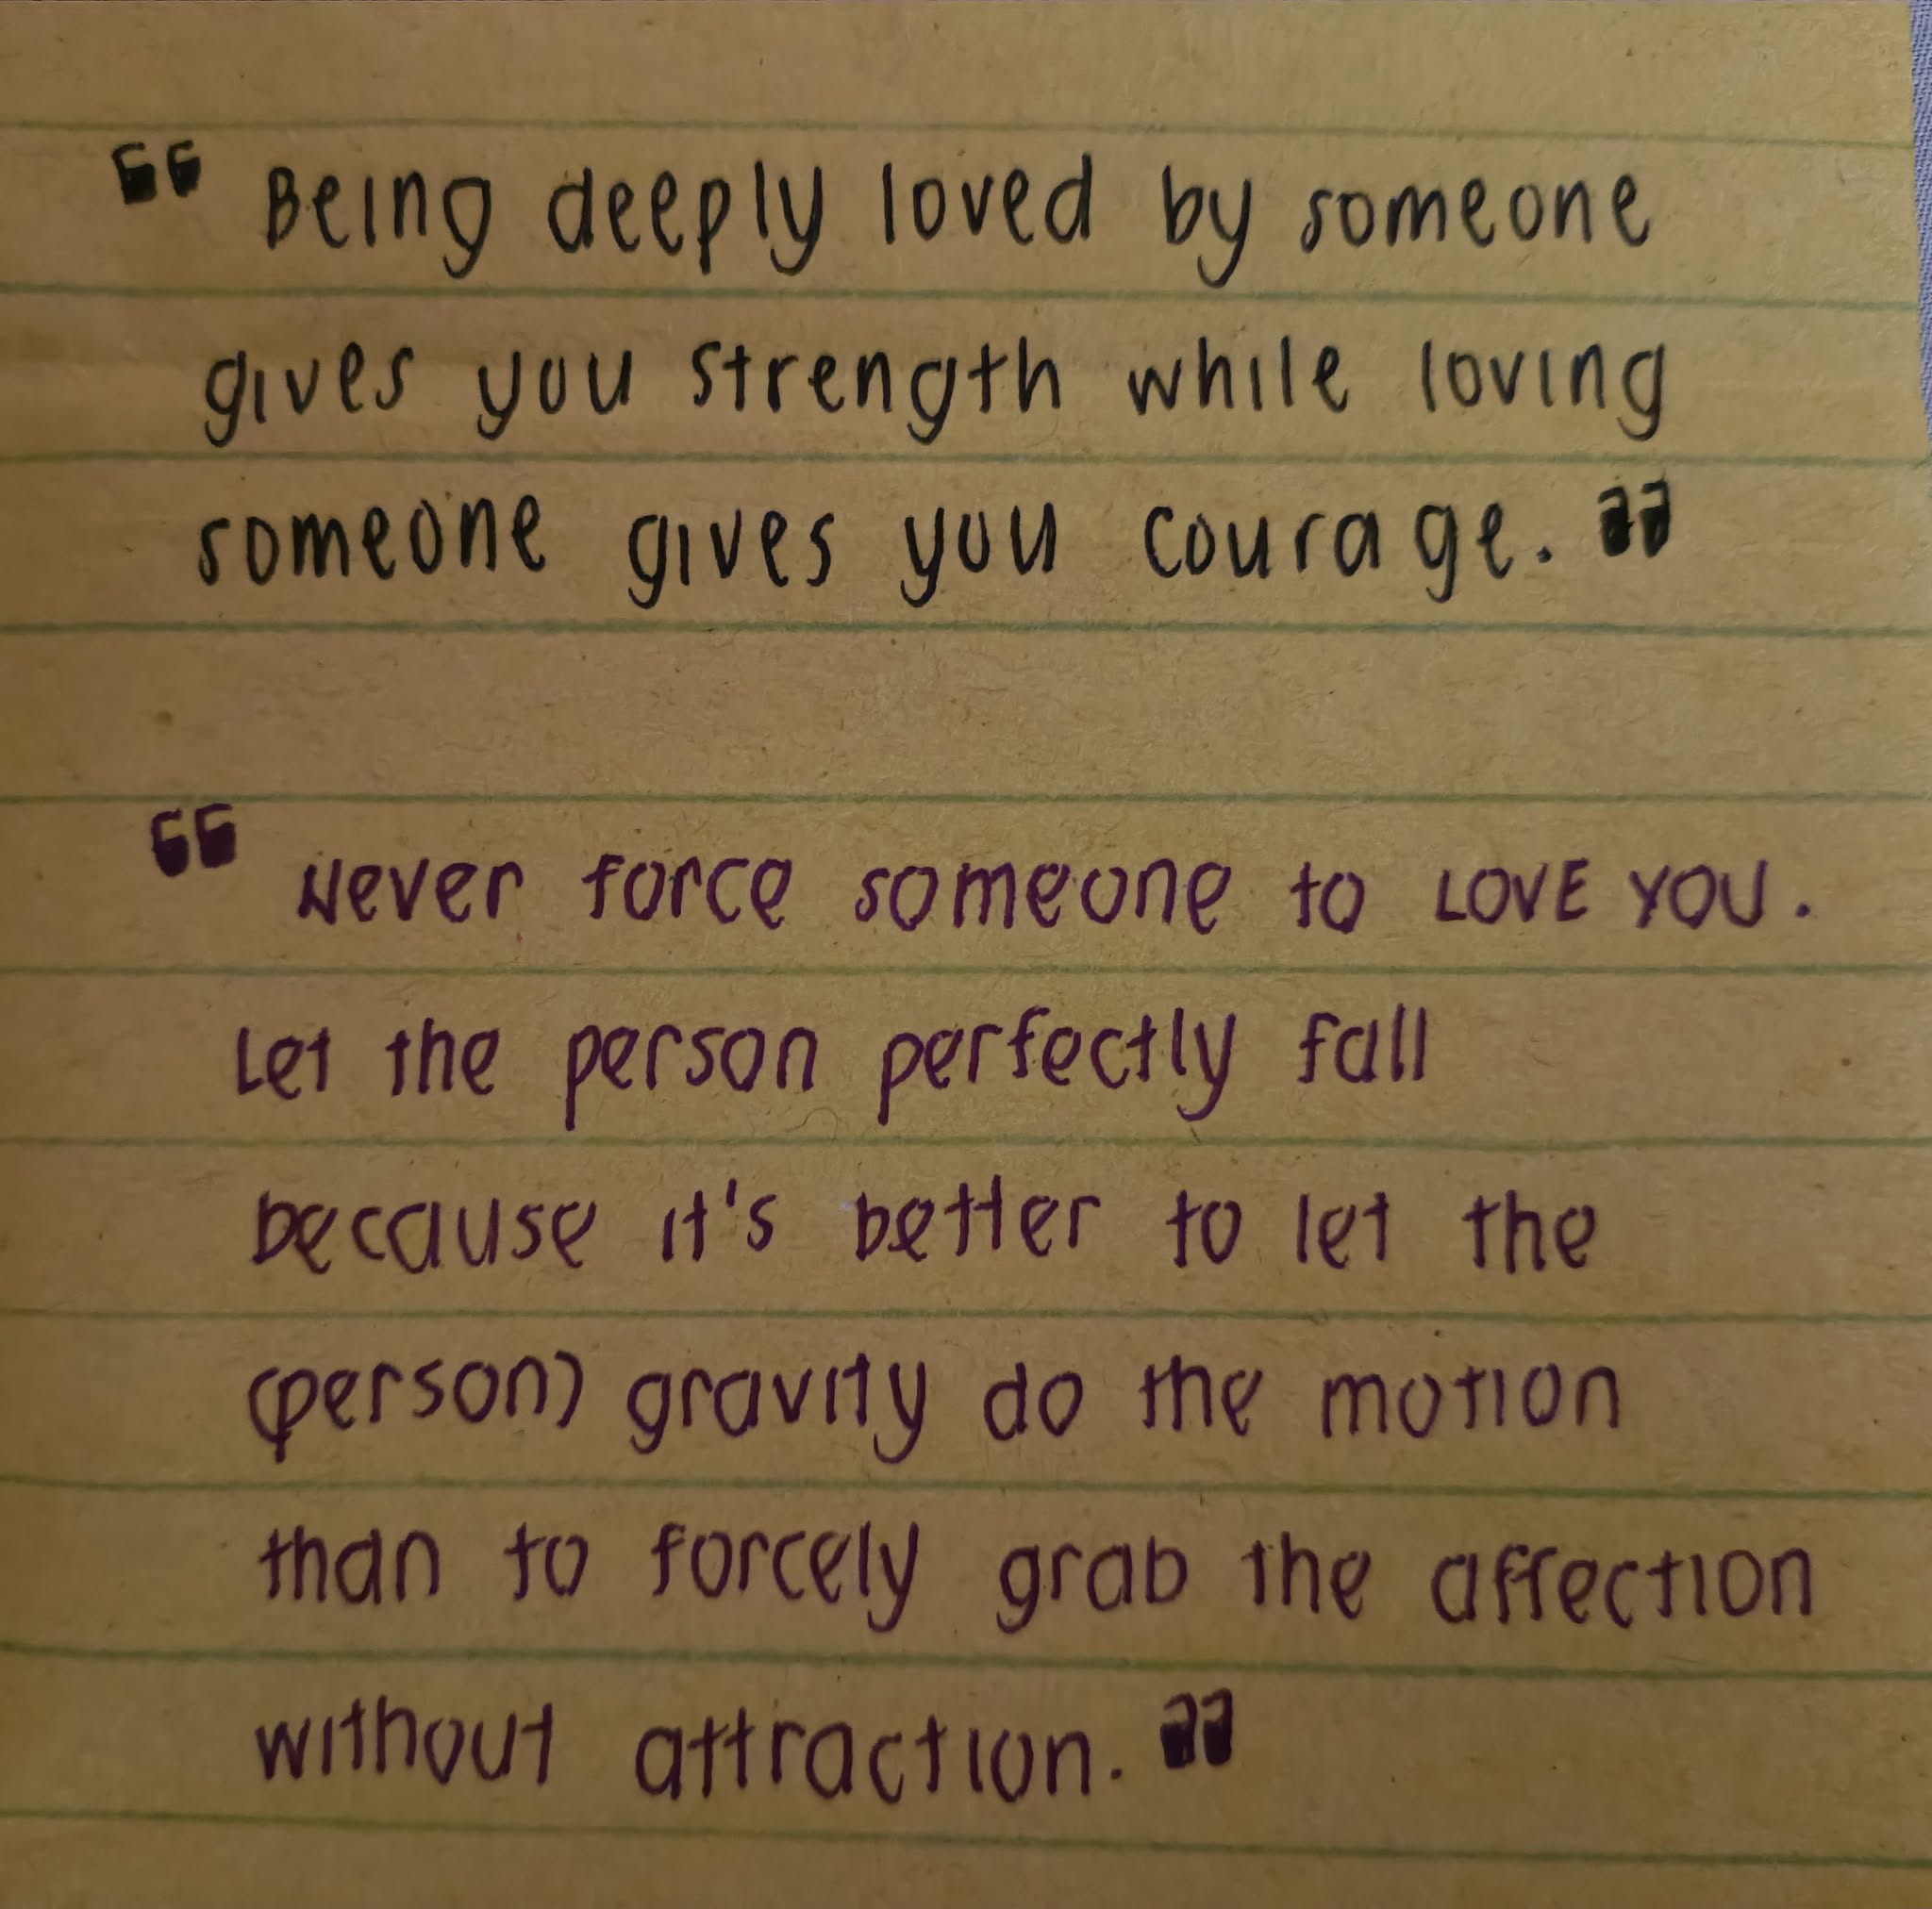 “ Being deeply loved by someone
gives you strength while loving
someone gives you courage. ”
“ Never force someone to LOVE YOU.
Let the person perfectly fall
because it's better to let the
(person) gravity do the motion
than to forcely grab the affection
without attraction. ”